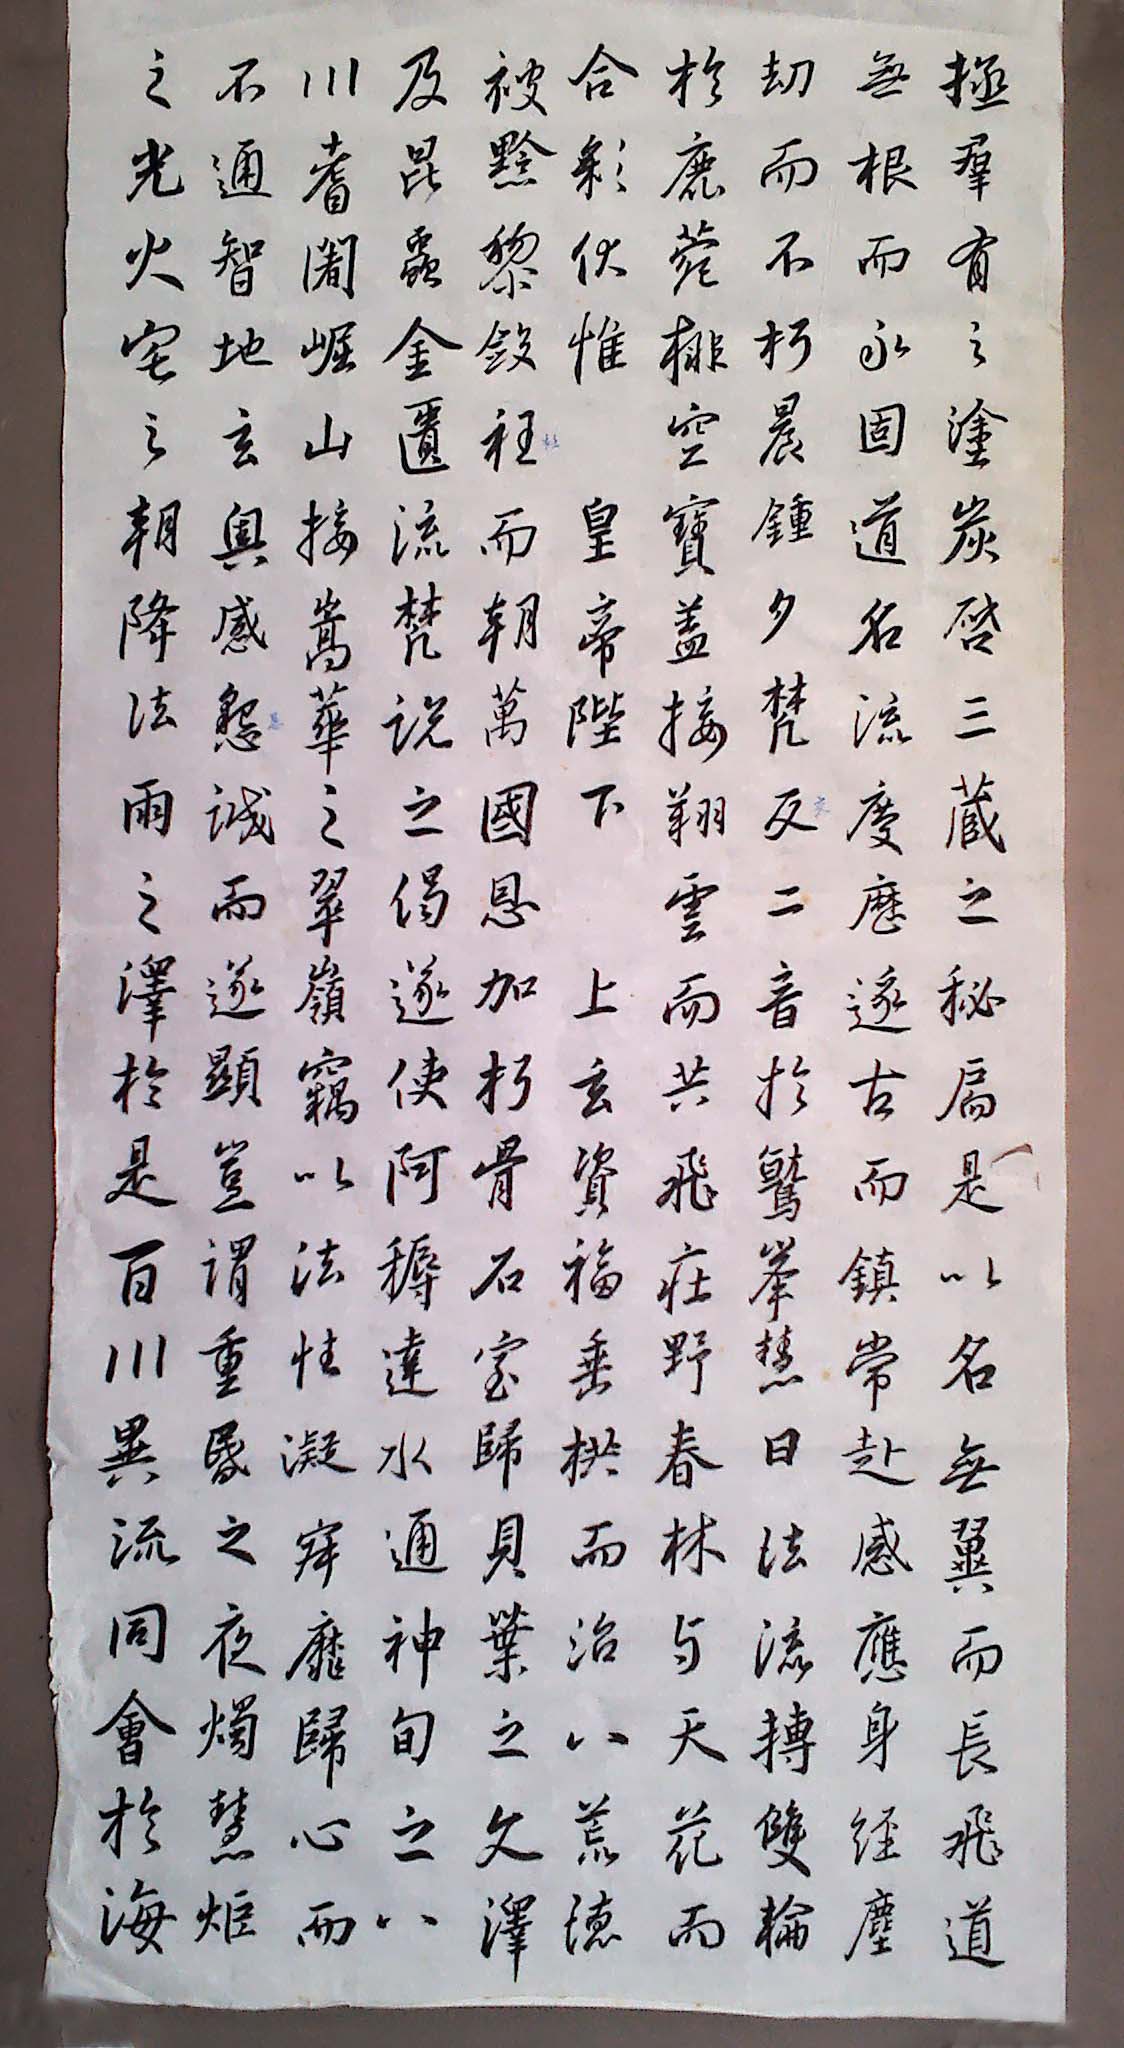 極群有之塗炭啓三蔵之秘扃是以名無翼而長飛道
無根而永固道名流慶歷遂古而鎮常赴感應身經塵
劫而不朽晨鍾夕梵交二音於鷲峯慧日法流轉雙輪
於鹿菀排空寶蓋接翔雲而共飛莊野春林与天花而
合彩伏惟 皇帝陛下 上玄資福垂拱而治八荒德
被黔黎斂衽而朝萬國恩加朽骨石室歸貝葉之文澤
及昆蟲金匱流梵説之偈遂使阿耨達水通神甸之八
川耆闍崛山接嵩華之翠嶺竊以法性凝寂靡歸心而
不通智地玄奥感懇誠而遂顯豈謂重昏之夜燭慧炬
之光火宅之朝降法雨之澤於是百川異流同會於海